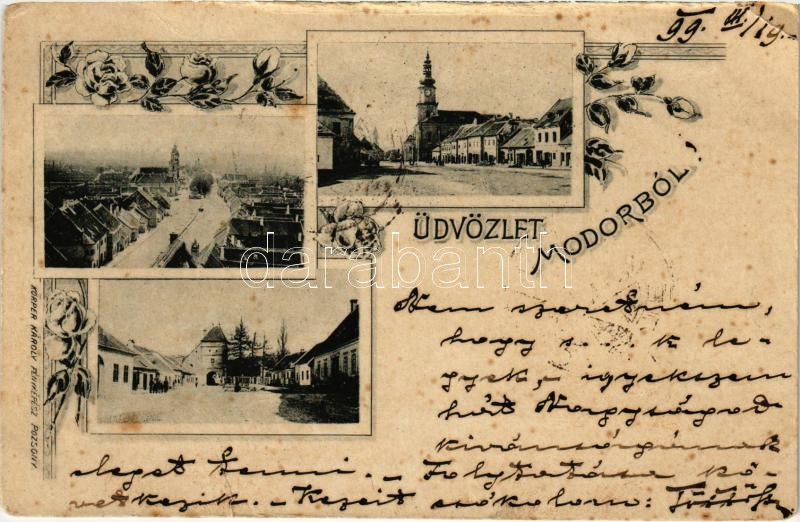 99. III/19.
ÜDVÖZLET MODORBÓL,
KÖRPER KÁROLY FÉNYKÉPÉSZ POZSONY.
darabanth
Nem szeretném,
hogy s . . . k le-
gyek, igyekszem
hát Nagyságod
kivánságának
eleget tenni. – Folytatása kö-
vetkezik. – Kezeit csókolom: